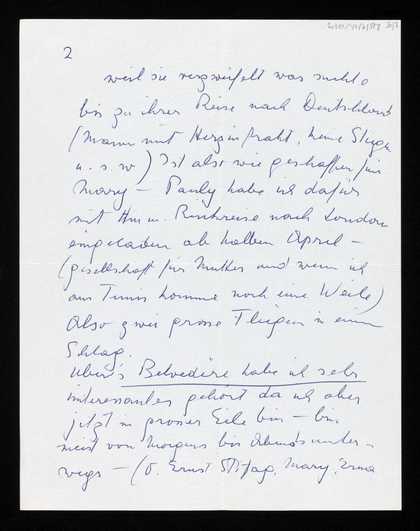 2
weil sie verzweifelt was sucht
bis zu ihrer Reise nach Deutschland
(Mann mit Herzinfarkt, keine Stiegen
u. s. w) Ist also wie geschaffen für
Mary – Pauly habe ich dafür
mit Hin u. Rückreise nach London
eingeladen ab halben April –
(gesellschaft für Mutter und wenn ich
aus Tunis komme noch eine Weile)
Also zwei grosse Fliegen in einem
Schlag.
Uber's Belvedère habe ich sehr
interessantes gehört da ich aber
jetzt in grosser Eile bin – bin
meist von Morgens bis Abends unter-
wegs – (O. Ernst Mary, Erna